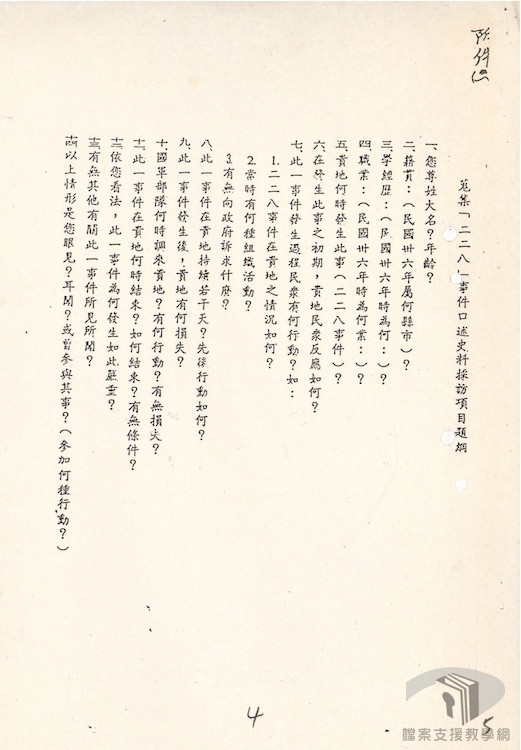 附件
蒐集「二二八」事件口述史料採訪項目題綱
一、您尊姓大名？年齡？
二、籍貫：（民國卅六年屬何縣市）？
三、學經歷：（民國卅六年時為何：）？
四、職業：（民國卅六年時為何業：）？
五、貴地何時發生此事（二二八事件）？
六、在發生此事之初期，貴地民衆反應如何？
七、此一事件發生過程民衆有何行動？如：
1.二二八事件在貴地之情況如何？
2.當時有何種組織活動？
3.有無向政府訴求什麼？
八、此一事件在貴地持續若干天？先後行動如何？
九、此一事件發生後，貴地有何損失？
十、國軍部隊何時調來貴地？有何行動？有無損失？
十一、此一事件在貴地何時結束？如何結束？有無條件？
十二、依您看法，此一事件為何發生如此嚴重？
十三、有無其他有關此一事件所見所聞？
十四、以上情形是您眼見？耳聞？或曾參與其事？（參加何種行動？）
4
5
檔案支援教學網